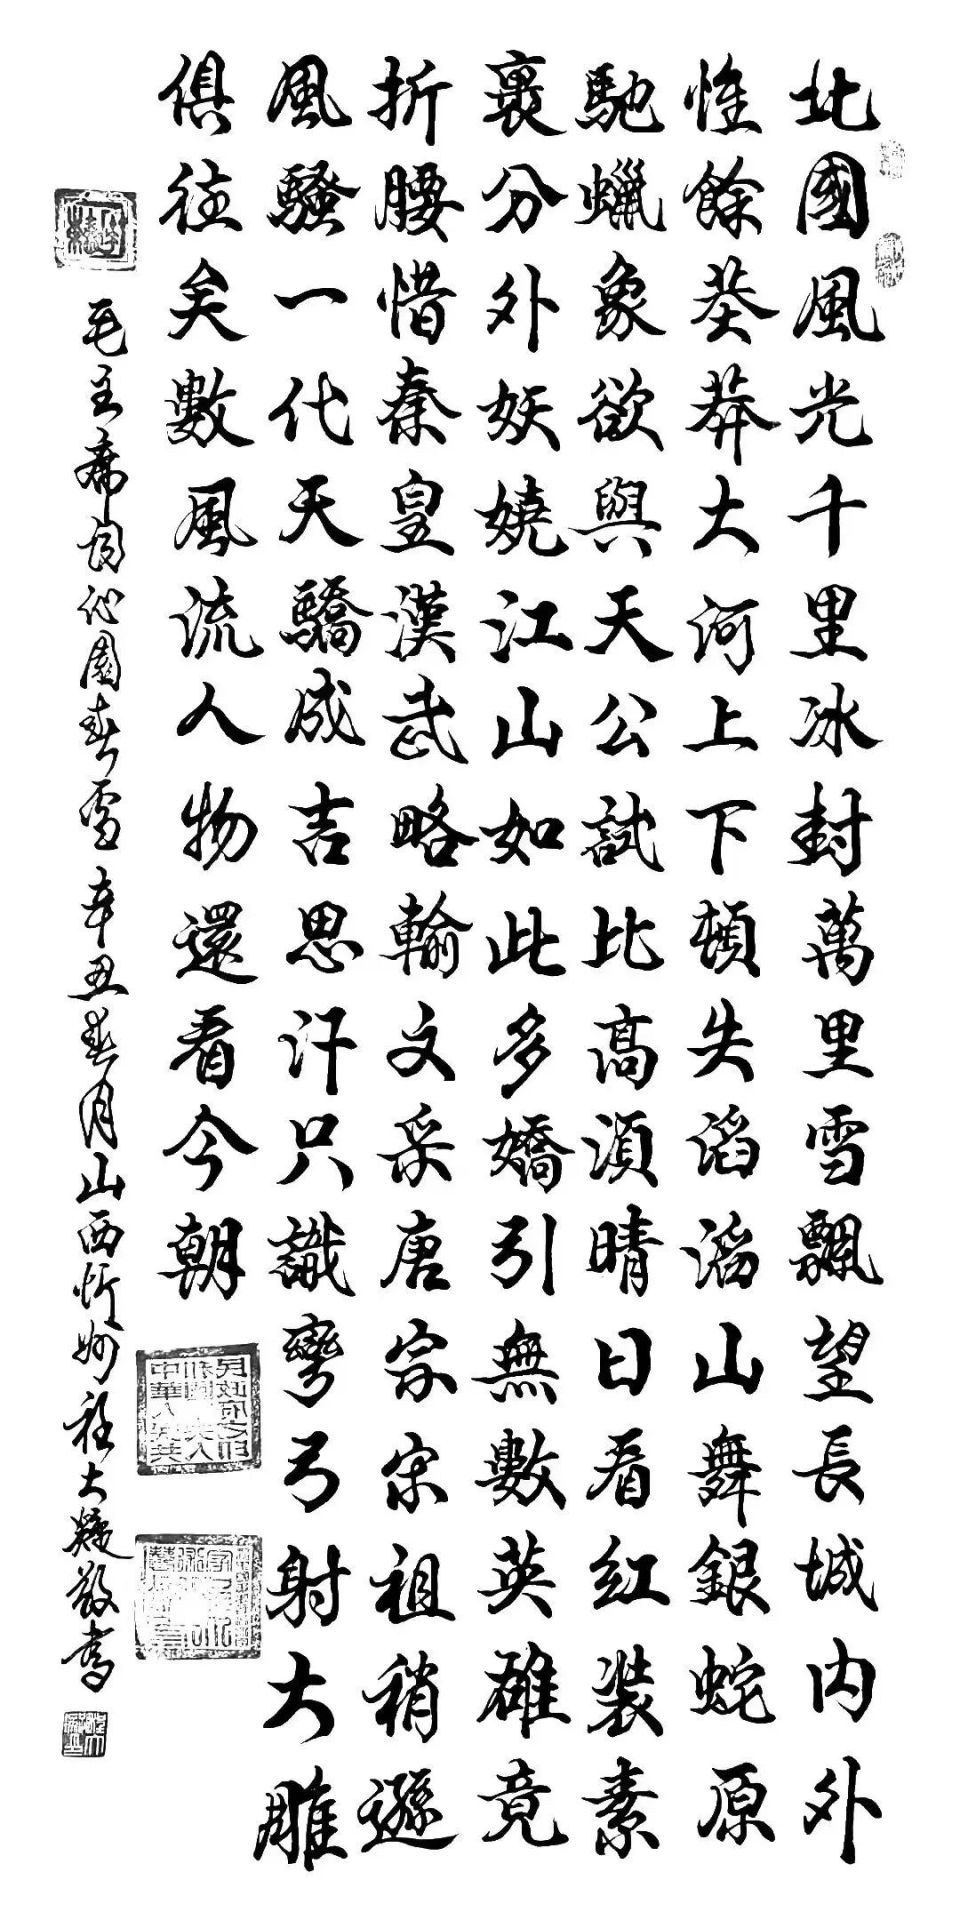 北國風光千里冰封萬里雪飄望長城内外
惟餘莽莽大河上下頓失滔滔山舞銀蛇原
馳蠟象欲與天公試比高須晴日看紅裝素
裹分外妖嬈江山如此多嬌引無數英雄竟
折腰惜秦皇漢武略輸文采唐宗宋祖稍遜
風騷一代天驕成吉思汗只識彎弓射大雕
俱往矣數風流人物還看今朝
毛主席詞沁園春雪辛丑春月山西忻州程大敬書